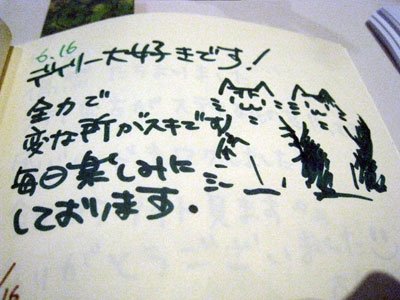 6.16
デイリー大好きです!
全力で
変な所がスキです!
毎日楽しみに
しております.
16